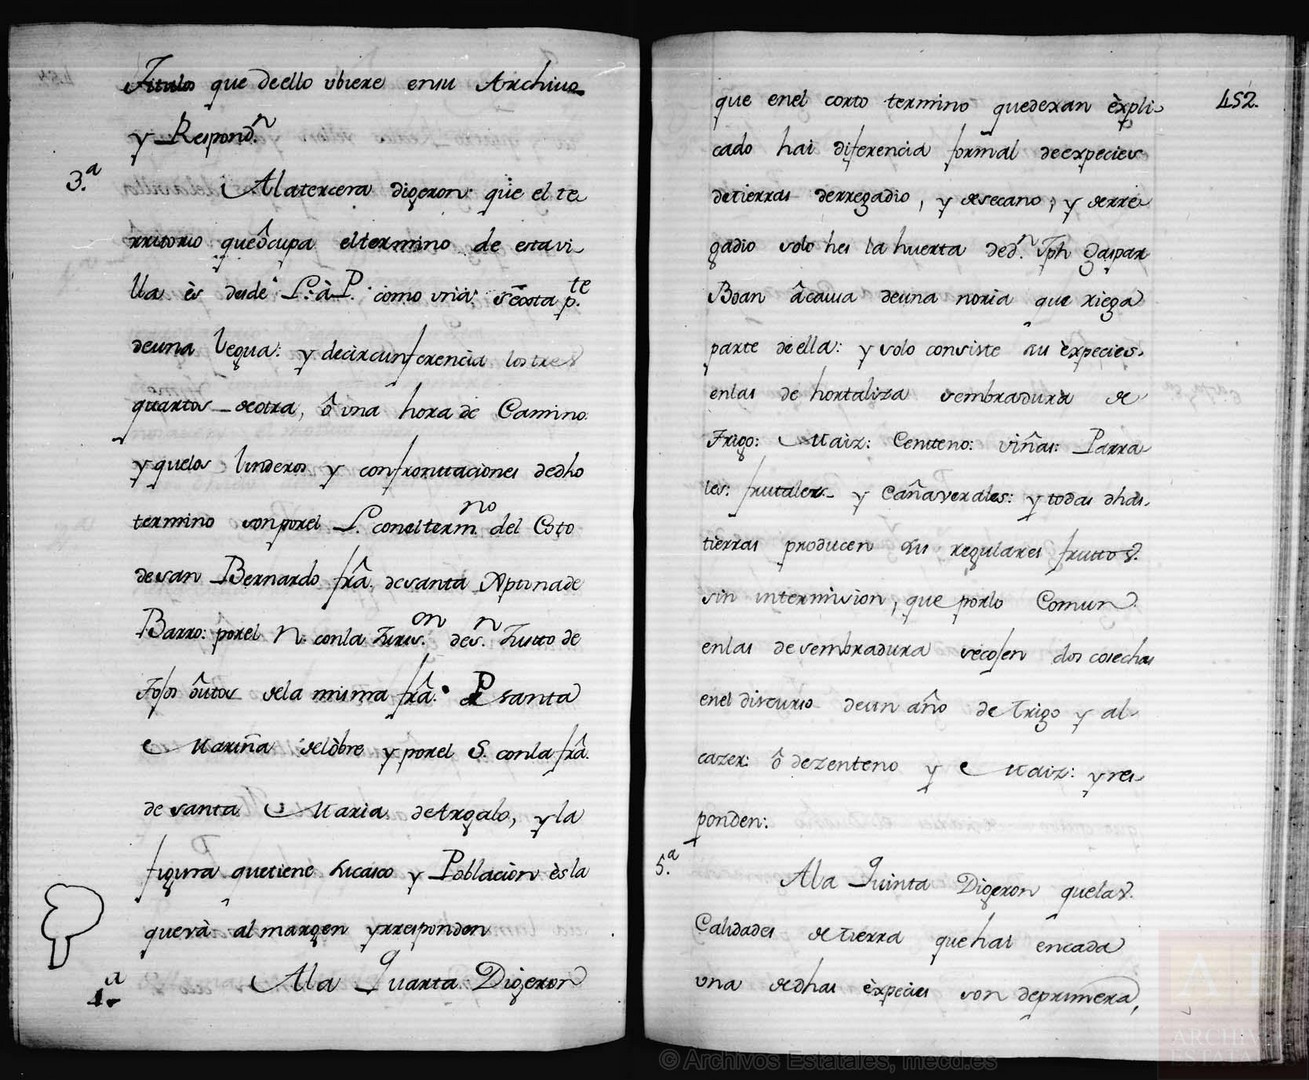 Titulo que deello ubiere ensu Archivo
y Respond.n
3.a
Alatercera digeron: que el te
rritorio queôcupa eltermino de estavi
lla ès desde L. à P. como vna
deuna legua: y decircunferencia lostres
quartos deotra, ô una hora de Camino
yquelos linderos y confrontaciones dedho
termino sonporel L. coneltermno. del Coto
desan Bernardo frâ. desanta
Barro: porel N. conla Juris.on des.n Justo de
Tojos ôutos dela misma frâ. P. santa
Mariña delòbre yporel S. conla frâ.
de santa Maria deArgalo, yla
figura quetiene sucasco y Poblaciòn èsla
quevà almargen yrresponden
4.a
Ala Quarta Digeron
452.
que enel corto termino quedexan èxpli
cado hai diferencia formal deexpecies
detierras derregadio, y desecano, y derre
gadio solo hei la huerta ded.n Jph Gaspar
Boan âcausa deuna noria que riega
parte deella: y solo consiste su èxpecies
enlas de hortaliza sembradura de
Trigo: Maiz: Centeno: viñas: Parra
les: frutales y Cañaverales: y todas dhas
tierras producen sus regulares fruttos.
sin intermision, que porlo Comun
enlas desembradura secojen dos cosechas
enel discurso deun año deTrigo y al
cazer: ô dezenteno y Maiz: yres
ponden:
5.a
Ala Quinta Digeron quelas
Calidades detierra quehai encada
una dedhas èxpecies son deprimera,
© Archivos Estatales, mecd.es